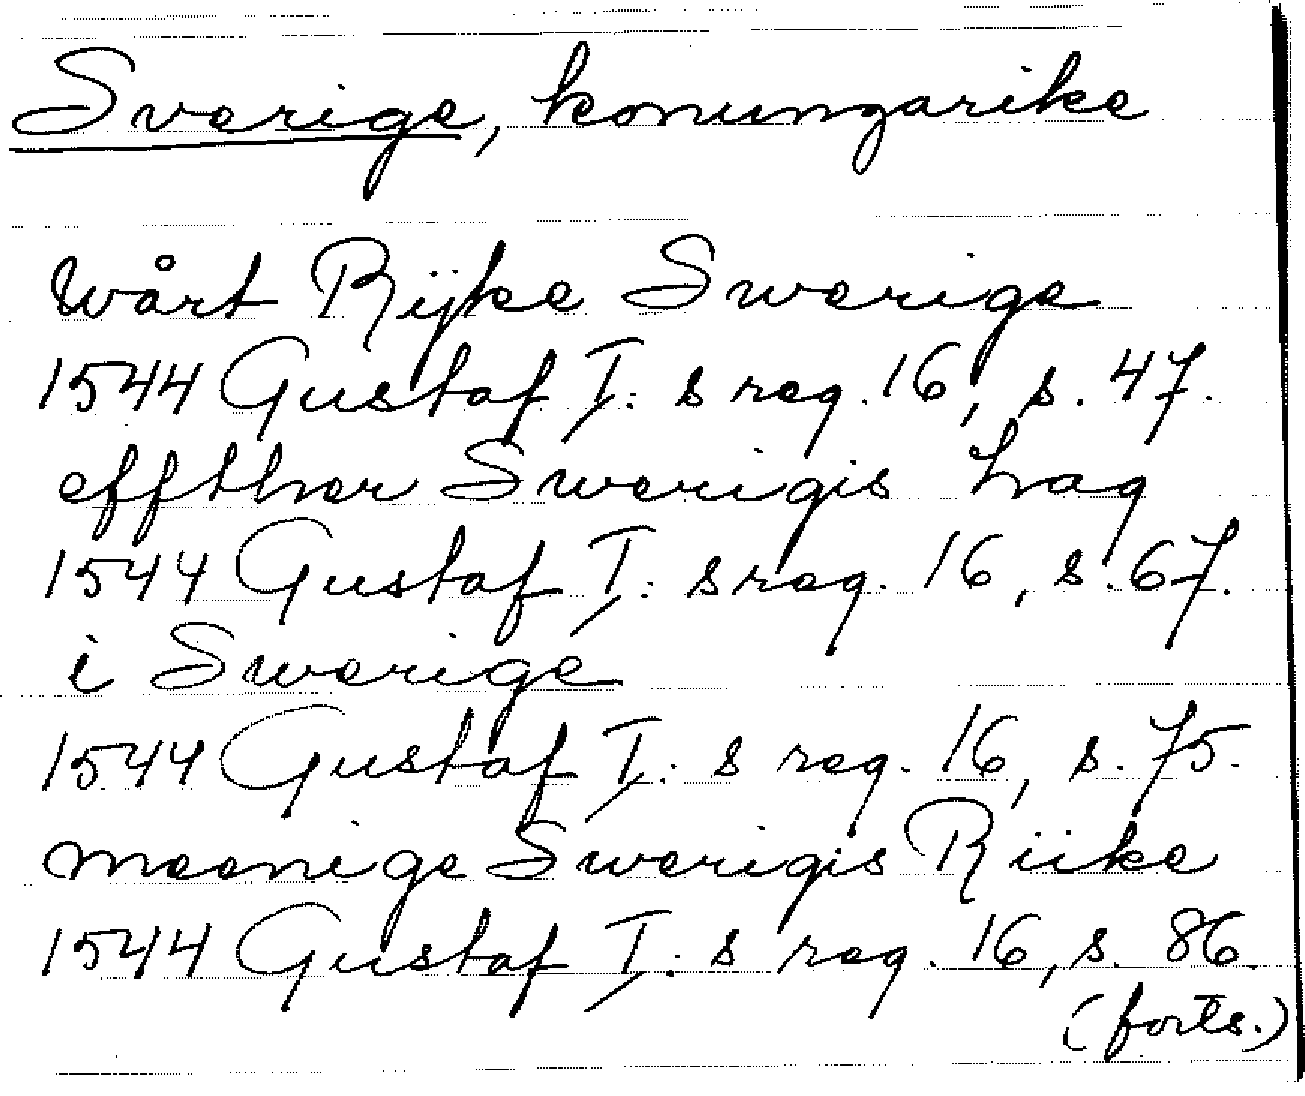 Sverige, konungarike
wårt Rijke Swerige
1544 Gustaf I:s reg. 16, s. 47.
effther Swerigis Lag
1544 Gustaf I:s reg. 16, s. 67.
i Swerige
1544 Gustaf I:s reg. 16, s. 75.
meenige Swerigis Riike
1544 Gustaf I:s reg. 16, s. 86.
(forts.)